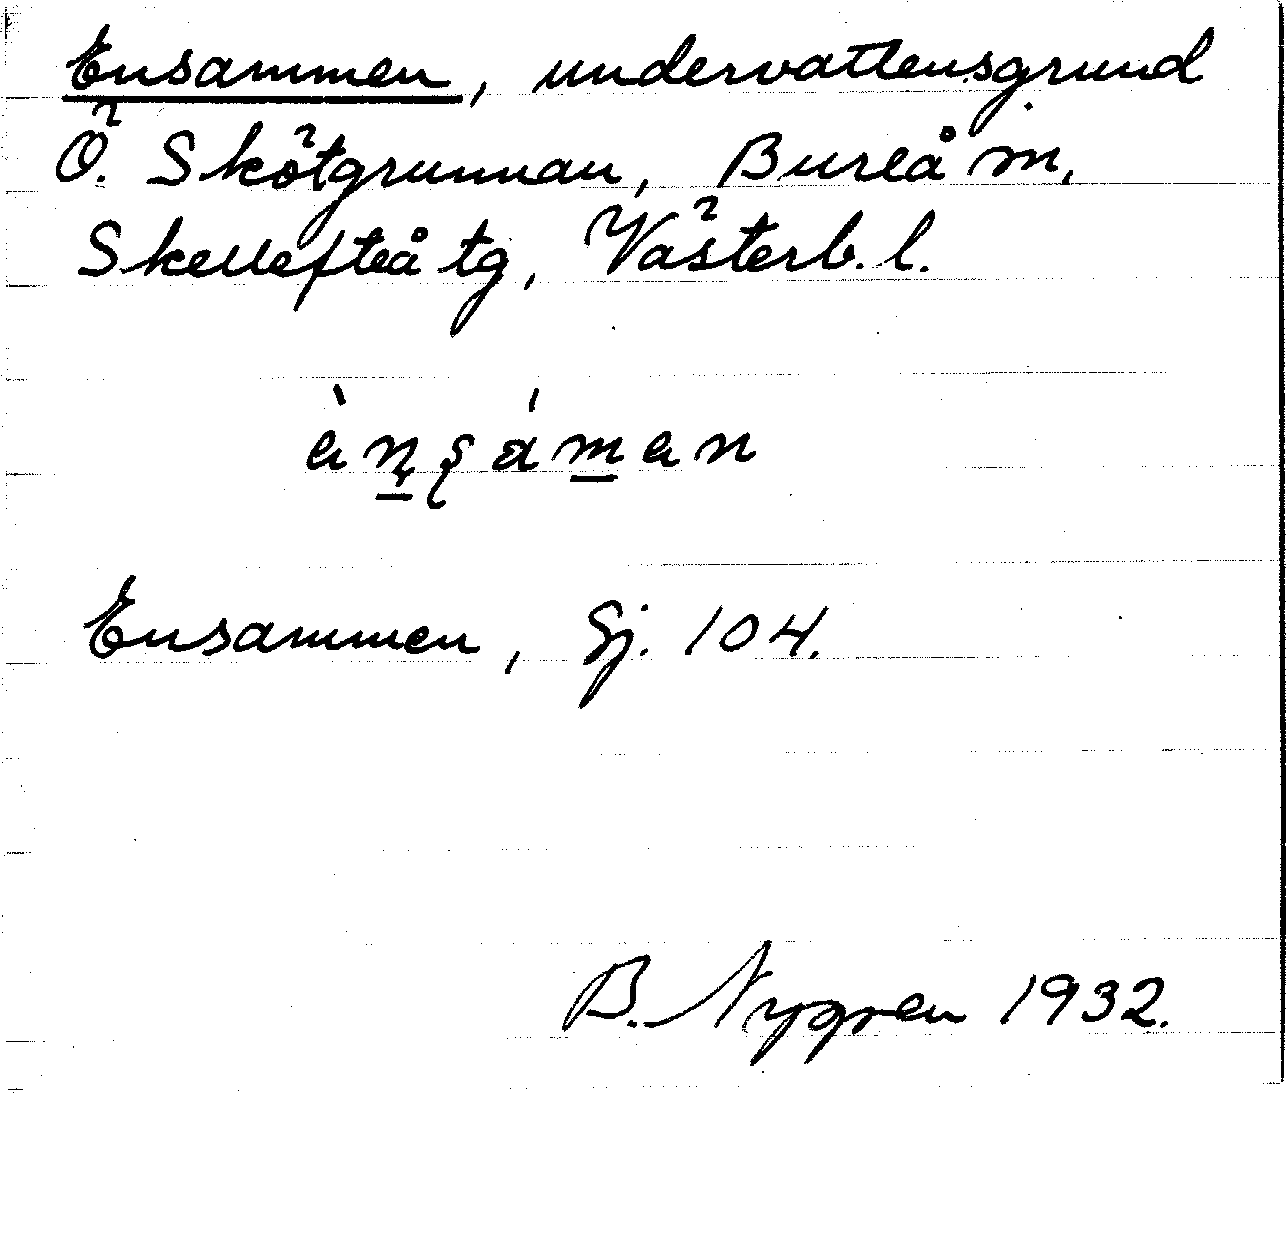 Ensammen, undervattensgrund
Ö. Skötgrunnan, Bureå m,
Skellefteå tg, Västerb. l.
Ensammen, Sj. 104.
B. Nygren 1932.